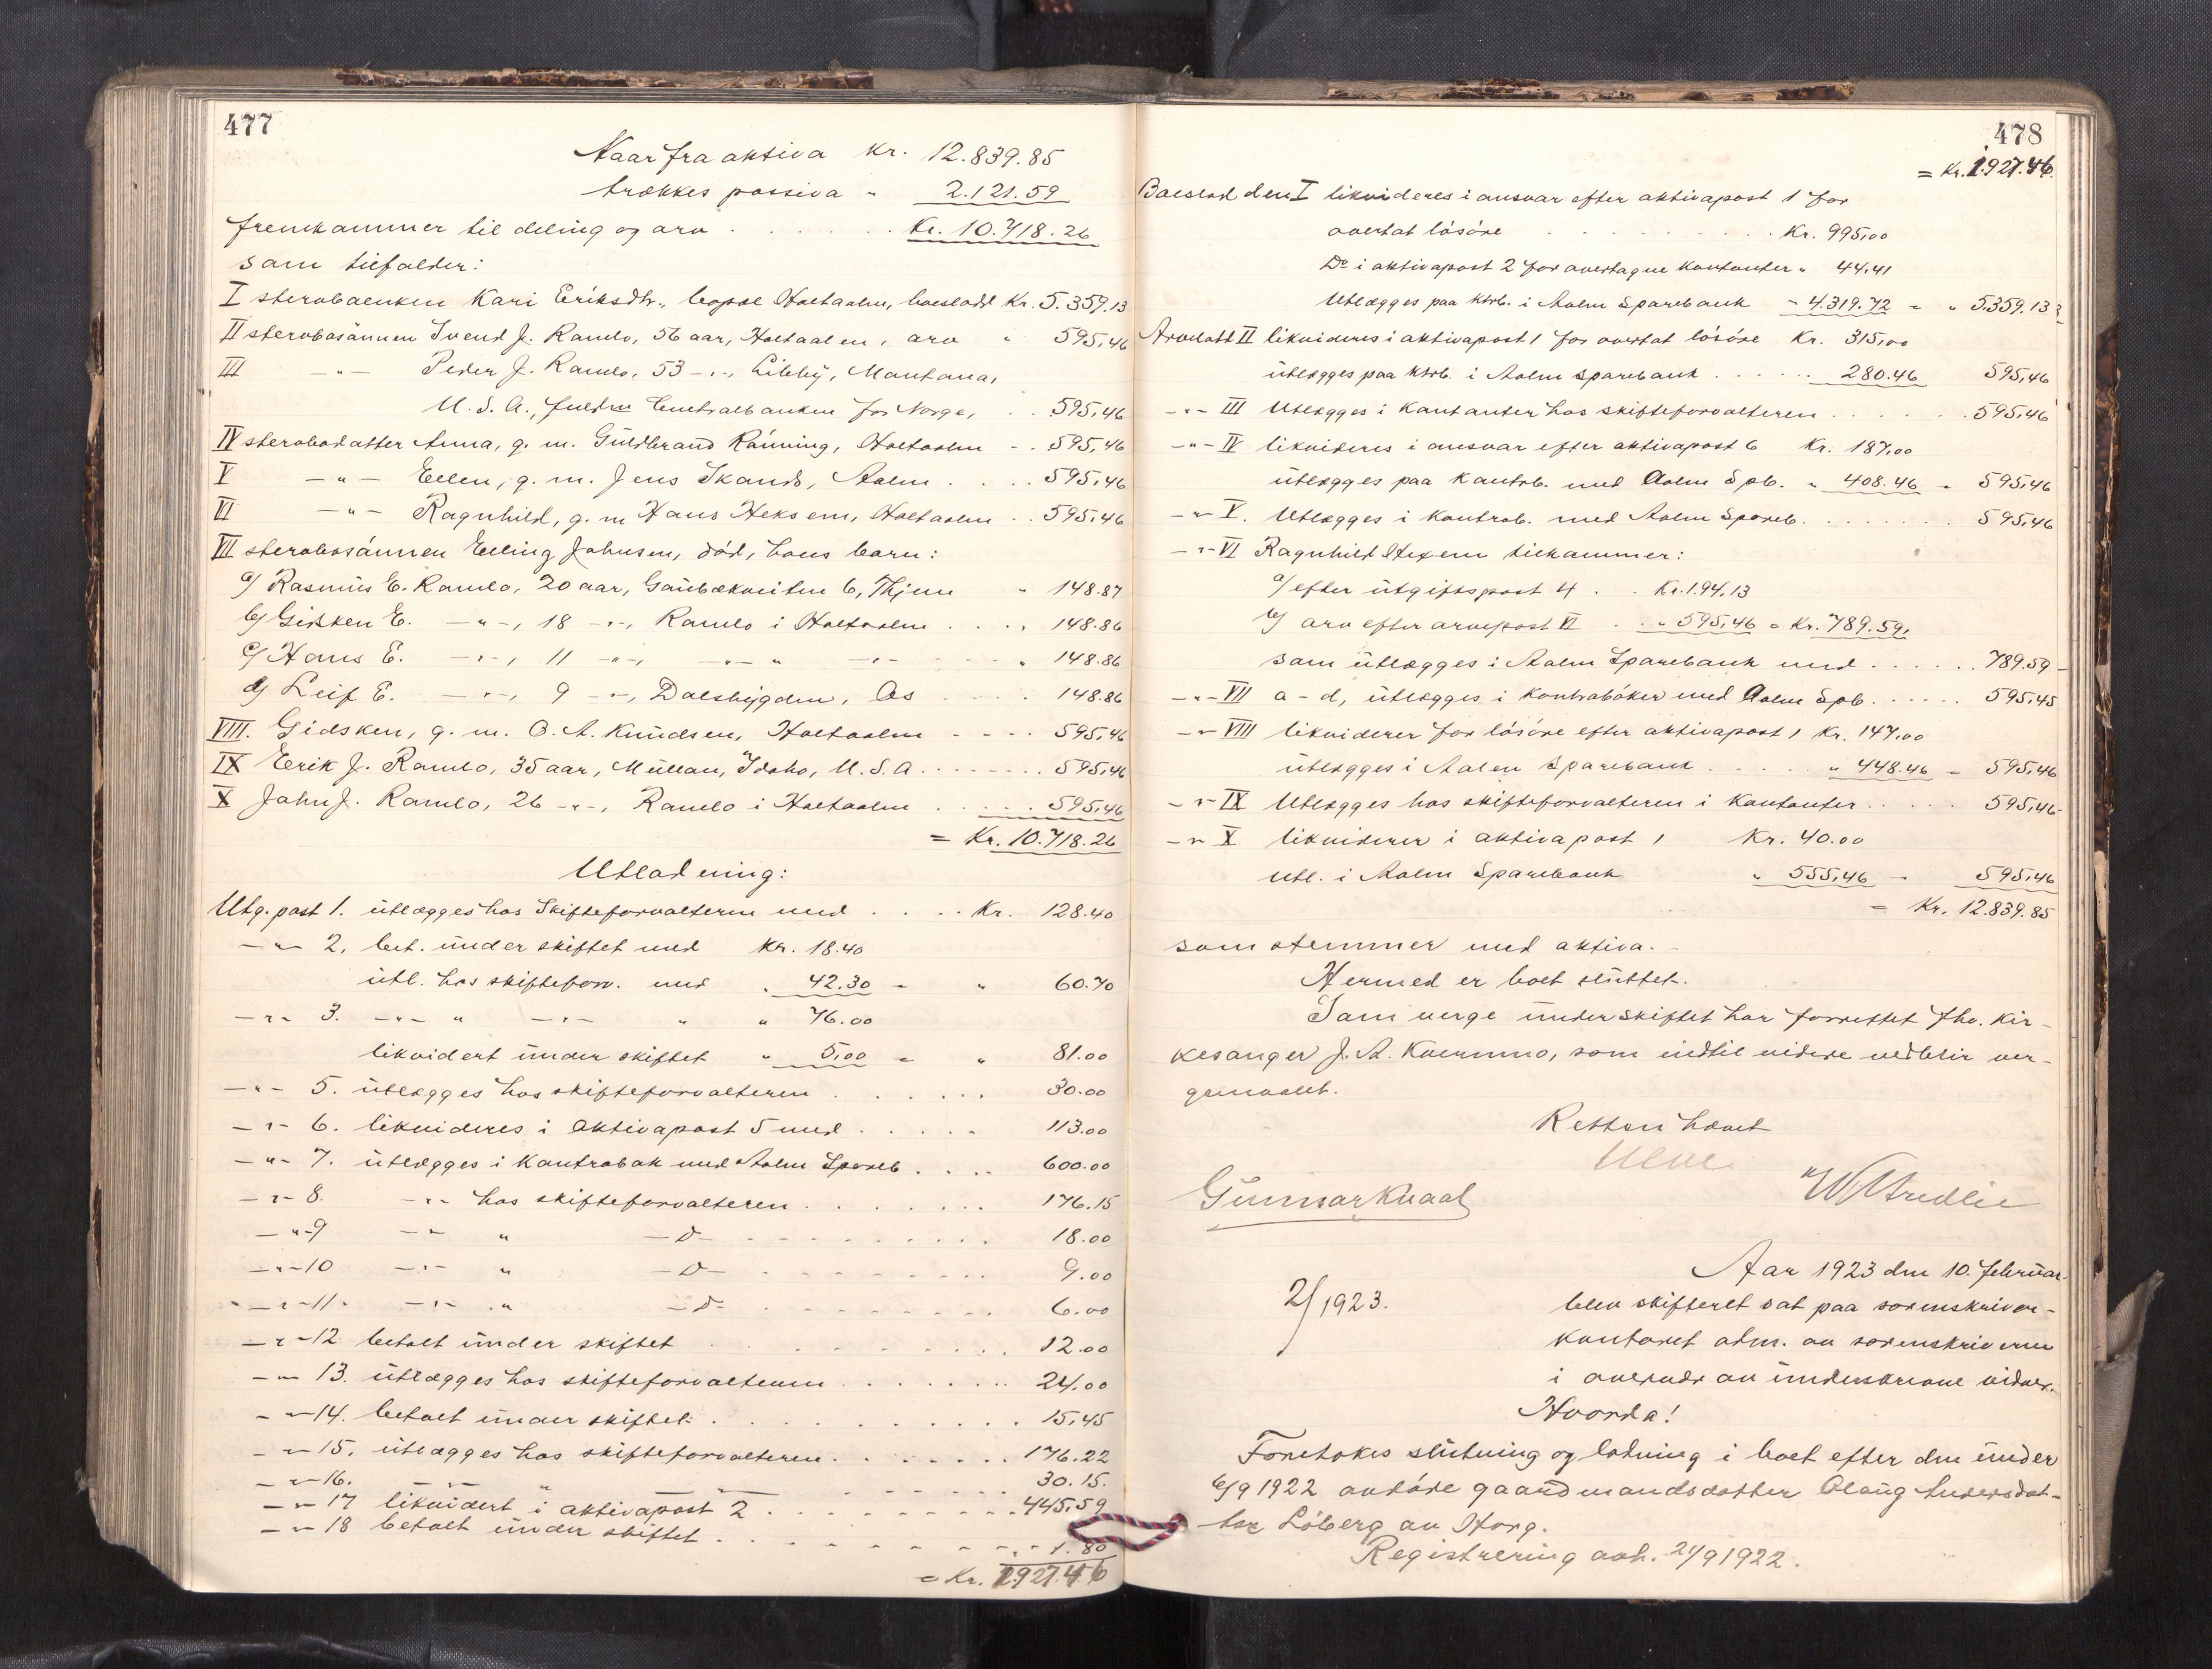 477
Naar fra aktiva Kr. 12.839.85
trækkes passiva " 2.121.59
fremkommer til deling og arv . . . . . . Kr. 10.718.26
som tilfalder:
I sterboenken Kari Eriksdtr., bopæl Holtaalen, boeslodd Kr. 5.359.13
II sterbosønnen Svend J. Ramlo, 56 aar, Holtaalen, arv " 595,46
III -"- Peder J. Ramlo, 53 -"-, Libby, Montana,
U. S. A., Centralbanken for Norge, . . 595,46
IV sterbodatter Anna, g. m. Guldbrand Rønning, Holtaalen - . 595,46
V -"- Ellen, g. m. Jens Skando, Aalen . . . . 595,46
VI -"- Ragnhild, g. m Hans Heksem, Holtaalen . . 595,46
VII sterbosønnen Elling Johnsen, død, hans barn:
a/ Rasmus E. Ramlo, 20 aar, Gaubækveiten 6, Thjem " 148.87
b/ Gisken E. -"-, 18 -"-, Ramlo i Holtaalen . . . . 148.86
c/ Hans E. -"-, 11 -"-, -"- " -"- . . . " 148.86
d/ Leif E. -"-, 9 -"-, Dalsbygden, Os . . . . 148.86
VIII. Gidsken, g. m. O. A. Knudsen, Holtaalen - - - - 595,46
IX Erik J. Ramlo, 35 aar, Mullan, Idaho, U. S. A. . . . . . . 595,46
X John J. Ramlo, 26 -"-, Ramlo i Holtaalen . . . . . 595,46
= Kr. 10.718.26
Utlodning:
Utg. post 1. utlægges hos Skifteforvalteren med . . . . Kr. 128.40
-"- 2. bet. under skiftet med Kr. 18.40
utl. hos skifteforv. med " 42.30 = " 60.70
-"- 3. -"- " -"- " " 76.00
likvidert under skiftet " 5,00 = " 81.00
-"- 5. utlægges hos skifteforvalteren . . . . . . 30.00
-"- 6. likvideres i aktivapost 5 med . . . . . 113.00
-"- 7. utlægges i Kontrabok med Aalen Spareb . . . . 600.00
-"- 8. -"- hos skifteforvalteren . . . . . . . 176.15
-"- 9 -"- " -d- . . . . . . . . . 18.00
-"- 10 -"- " -d- . . . . . . . . . 9.00
-"- 11. -"- " -d- . . . . . . . . . 6.00
-"- 12 betalt under skiftet . . . . . . . . . 12.00
-"- 13. utlægges hos skifteforvalteren . . . . . . . 24.00
-"- 14. betalt under skiftet . . . . . . . . . . 15,45
-"- 15. utlægges hos skifteforvalteren . . . . . . . 176.22
-"- 16. -"- " -"- . . . . . . 30.15.
-"- 17 likvidert i aktivapost 2 . . . . . . . . . 445,59
-"- 18 betalt under skiftet . . . . . . . . . 1.80
= Kr. 1927.46
478
= Kr. 1.927.46.
Boeslodden I likvideres i ansvar efter aktivapost 1 for
overtat løsøre . . . . . . . . . Kr. 995,00
Do i aktivapost 2 for overtagne kontanter " 44,41
Utlægges paa Ktrb. i Aalen Sparebank " 4.319.72 = " 5.359.13
Arvelott II likvideres i aktivapost 1 for overtat løsøre Kr. 315,00
utlægges paa Ktrb. i Aalen Sparebank . . . . . 280.46 595,46
-"- III Utlægges i Kontanter hos skifteforvalteren . . . . . . 595,46
-"- IV likvideres i ansvar efter aktivapost 6 Kr. 187,00
utlægges paa Kontrb. med Aalen Spb. " 408.46 = 595,46
-"- V. Utlægges i Kontrab. med Aalen Spareb. . . . . . . . 595,46
-"- VI Ragnhild Hexem tilkommer:
a/ efter utgiftspost 4 . . Kr. 194.13
b/ arv efter arvepost VI . . " 595,46 = Kr. 789.59,
som utlægges i Aalen Sparebank med . . . . . . 789.59
-"- VII a-d, utlægges i Kontrabøker med Aalen Spb. . . . . . 595,45
-"- VIII likviderer for løsøre efter aktivapost 1 Kr. 147,00
utlægges i Aalen Sparebank . . . . . " 448.46 = 595,46
-"- IX Utlægges hos skifteforvalteren i Kontanter . . . . . 595,46
-"- X likviderer i aktivapost 1 Kr. 40.00
Utl. i Aalen Sparebank " 555,46 - 595,46
= Kr. 12.839.85
som stemmer med aktiva. -
Hermed er boet sluttet.
Som verge under skiftet har forrettet fhv. kir-
kesanger J. A. Kvernmo, som indtil videre vedblir ver-
gemaalet.
Retten hævet
Gunnar Knaal
Aar 1923 den 10. februar
2/1923.
blev skifteret sat paa sorenskriver-
kontoret adm. av sorenskriveren
i overvær av underskrevne vidner.
Hvorda!
Foretokes slutning og lodning i boet efter den under
6/9 1922 avdøde gaardmandsdatter Olaug Andersdat-
ter Løberg av Horg.
Registrering avh. 21/9 1922.